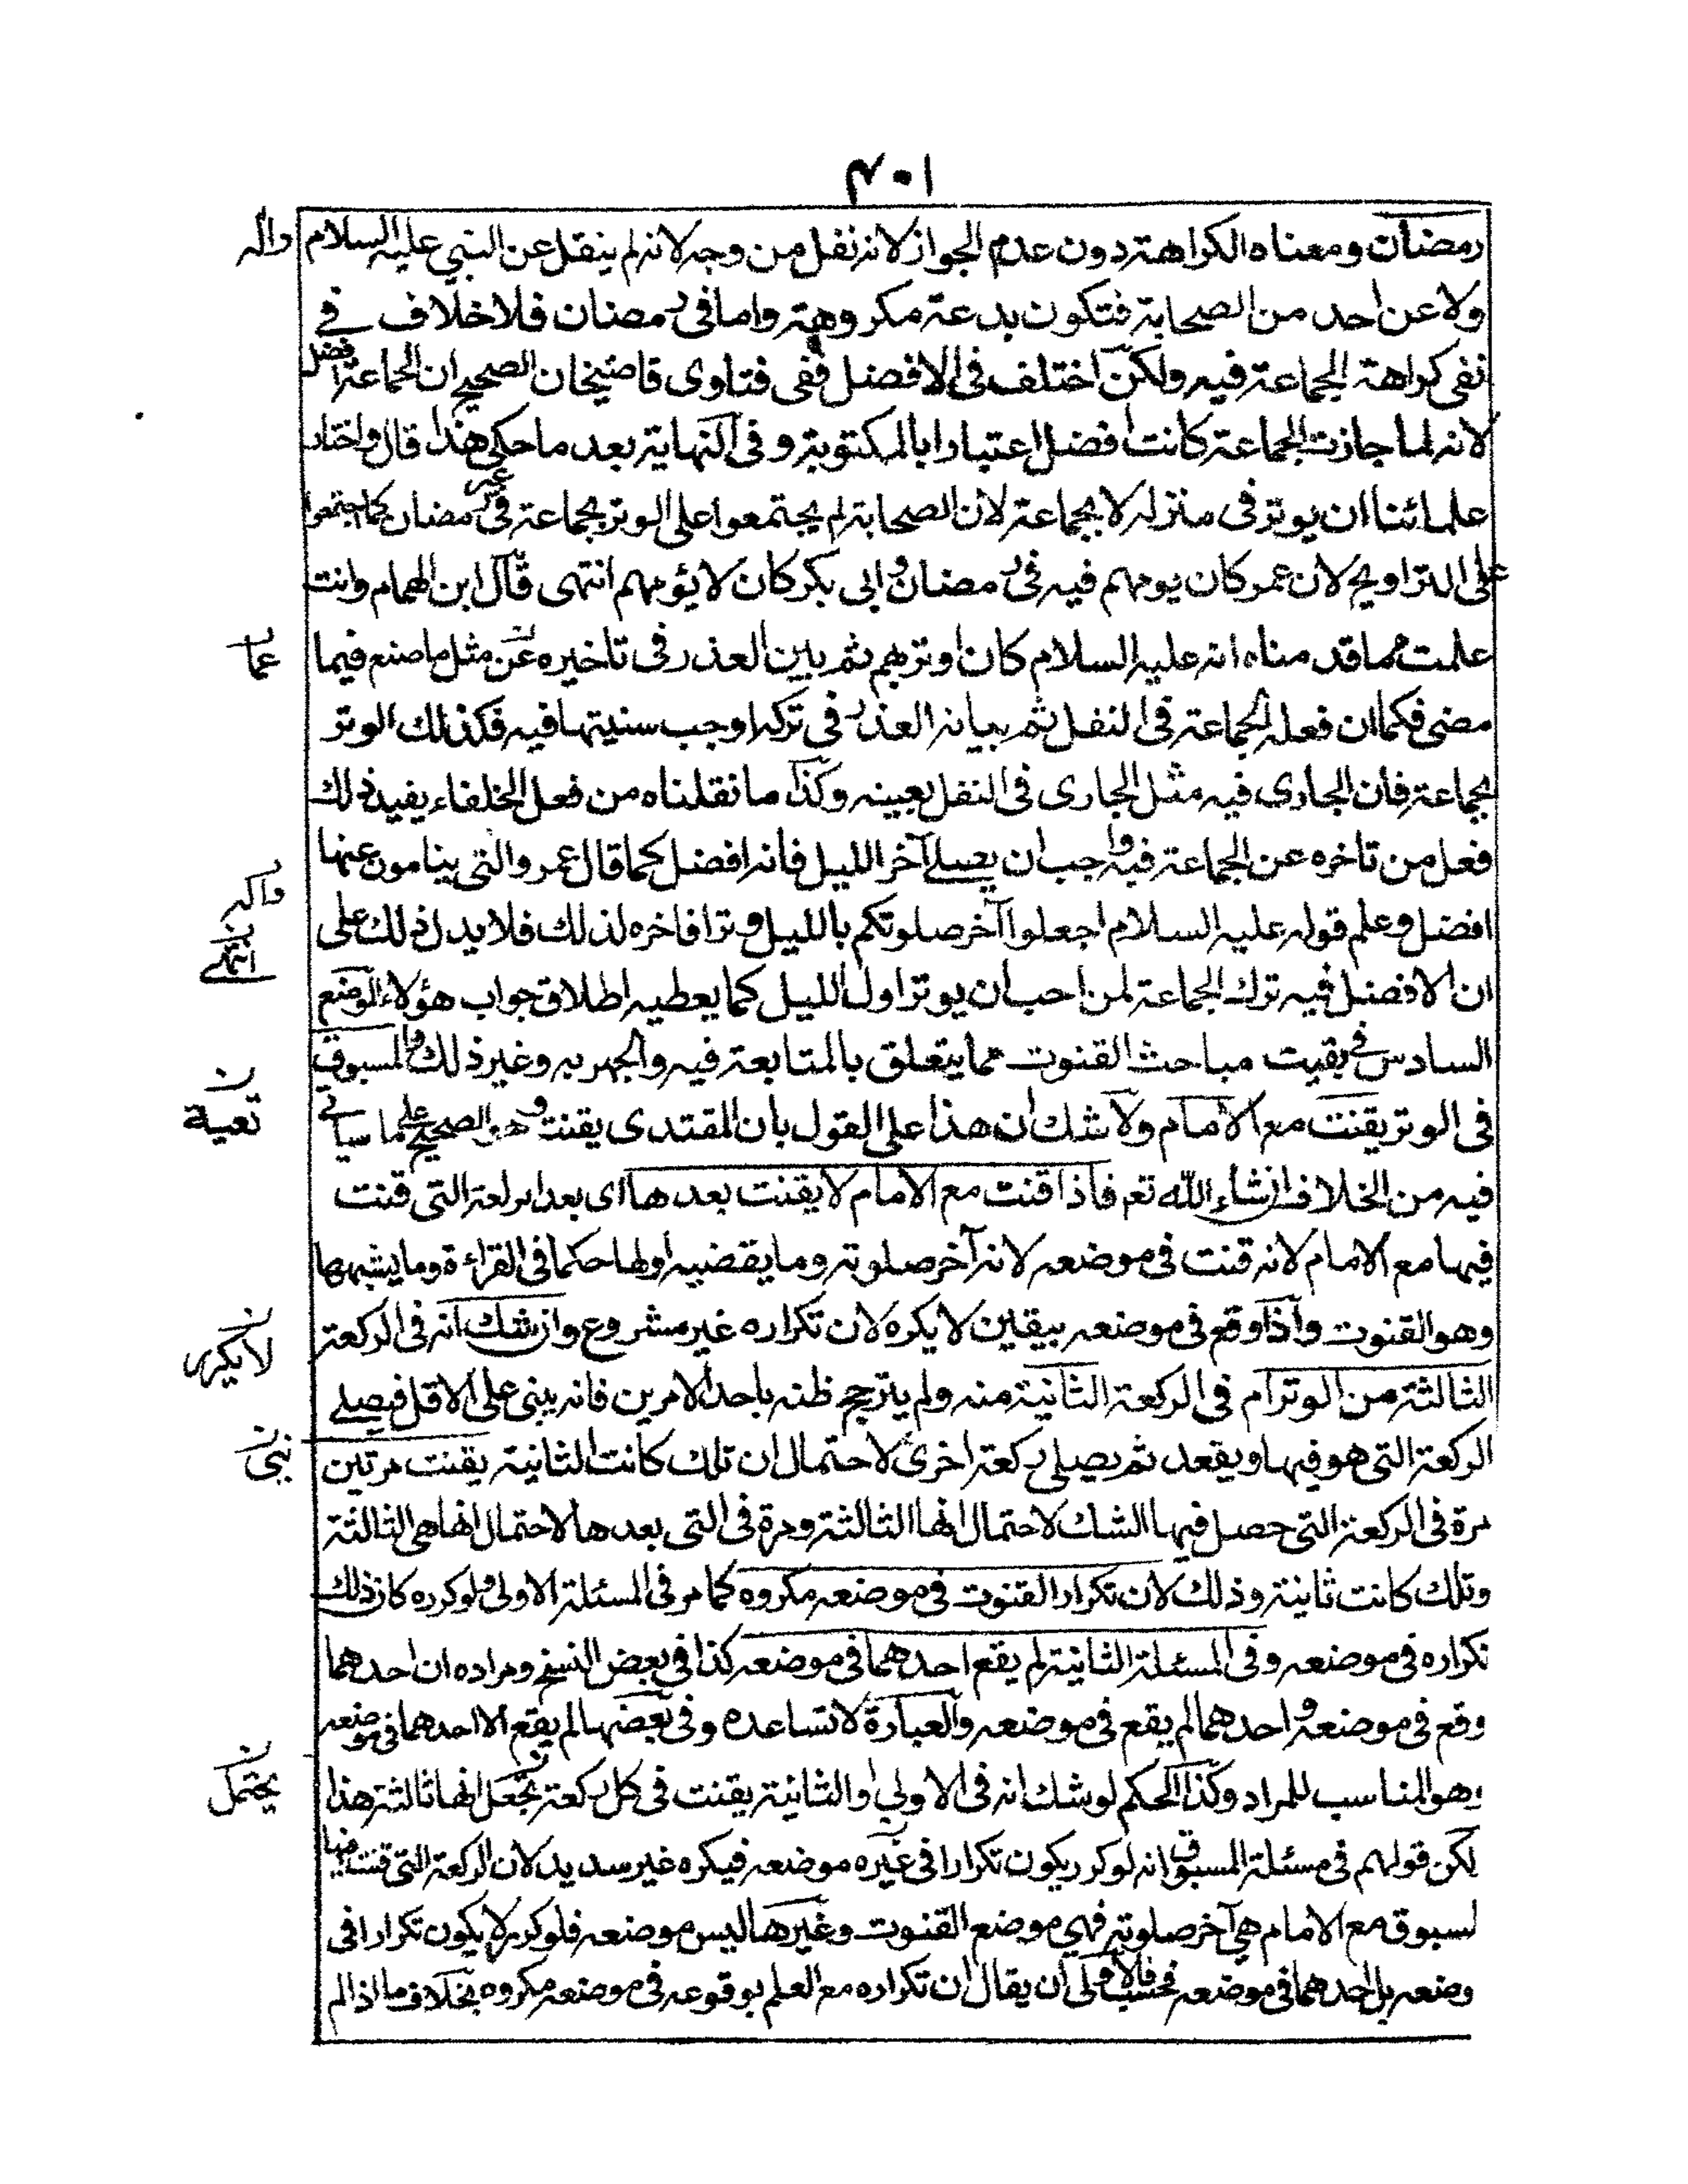 ٤٠١
رمضان ومعناه الكراهة دون عدم الجواز لانه نفل من وجه لانه لم ينقل عن النبي عليه السلام واله
ولا عن احد من الصحابة فتكون بدعة مكروهة واما فى رمضان فلا خلاف فے
نفى كراهة الجماعة فيه ولكن اختلف فى الافضل ففى فتاوى قاضيخان الصحيح ان الجماعة افضل
لانه لما جازت الجماعة كانت افضل اعتبارا بالمكتوبة وفى النهاية بعد ما حكى هذا قال واختار
علمائنا ان يوتر فى منزله لا بجماعة لان الصحابة لم يجتمعوا على الوتر بجماعة فى غير رمضان كما اجتمعوا
على التراويح لان عمر كان يومهم فيه فى رمضان وابى بكر كان لا يؤمهم انتهى قال ابن الهمام وانت
علمت مما قدمناه انه عليه السلام كان اوتر بهم ثم بين العذر فى تاخيره عن مثل ما صنع فيما عما
مضى فكما ان فعله الجماعة فى النفل ثم بيانه العذر فى تركه اوجب سنيتها فيه فكذلك الوتر
بجماعة فان الجارى فيه مثل الجارى فى النفل بعينه وكذا ما نقلناه من فعل الخلفاء يفيد ذلك
فعل من تاخره عن الجماعة فيه واجب ان يصلے آخر الليل فانه افضل كما قال عمر والتى ينامون عنها
افضل وعلم قوله عليه السلام اجعلوا آخر صلوتكم بالليل وترا فاخره لذلك فلا يدل ذلك على
ان الافضل فيه ترك الجماعة لمن احب ان يوتر اول الليل كما يعطيه اطلاق جواب هؤلاء الوضع انتهى
السادس فے بقيت مباحث القنوت مما يتعلق بالمتابعة فيه والجهر به وغير ذلك والمسبوق
فى الوتر يقنت مع الامام ولا شك ان هذا على القول بان المقتدى يقنت وهو الصحيح على ما سياتے
فيه من الخلاف انشاء الله تع فاذا قنت مع الامام لا يقنت بعدها اى بعد الركعة التى قنت
فيها مع الامام لانه قنت فى موضعه لانه آخر صلوته وما يقضيه اولها حكما فى القراءة وما يشبهها
وهو القنوت واذا وقع فى موضعه بيقين لا يكره لان تكراره غير مشروع وان شك انه فى الركعة لا يكرر
الثالثة من الوتر ام فى الركعة الثانية منه ولم يترجح ظنه باحد الامرين فانه يبنى على الاقل فيصلے
الركعة التى هو فيها ويقعد ثم يصلى ركعة اخرى لاحتمال ان تلك كانت الثانية يقنت مرتين
مرة فى الركعة التى حصل فيها الشك لاحتمال انها الثالثة ومرة فى التى بعدها لاحتمال انها هى الثالثة
وتلك كانت ثانية وذلك لان تكرار القنوت فى موضعه مكروه كما مر فى المسئلة الاولى ولو كرره كان ذلك
تكراره فى موضعه وفى المسئلة الثانية لم يقع احدهما فى موضعه كذا فى بعض النسخ ومراده ان احدهما
وقع فى موضعه واحدهما لم يقع فى موضعه والعبارة لا تساعده وفى بعضها لم يقع الا احدهما فى موضعه
وهو المناسب للمراد وكذا الحكم لو شك انه فى الاولى او الثانية يقنت فى كل ركعة تجعل انها ثالثة هذا يحتمل
لكن قولهم فى مسئلة المسبوق انه لو كرر يكون تكرارا فى غيره موضعه فيكره غير سديد لان الركعة التى قنت فيها
لسبوق مع الامام هى آخر صلوته فهى موضع القنوت وغيرها ليس موضعه فلو كرر لا يكون تكرارا فى
وضعه بل احدهما فى موضعه فحسب فالاولى ان يقال ان تكراره مع العلم بوقوعه فى موضعه مكروه بخلاف ما اذا لم